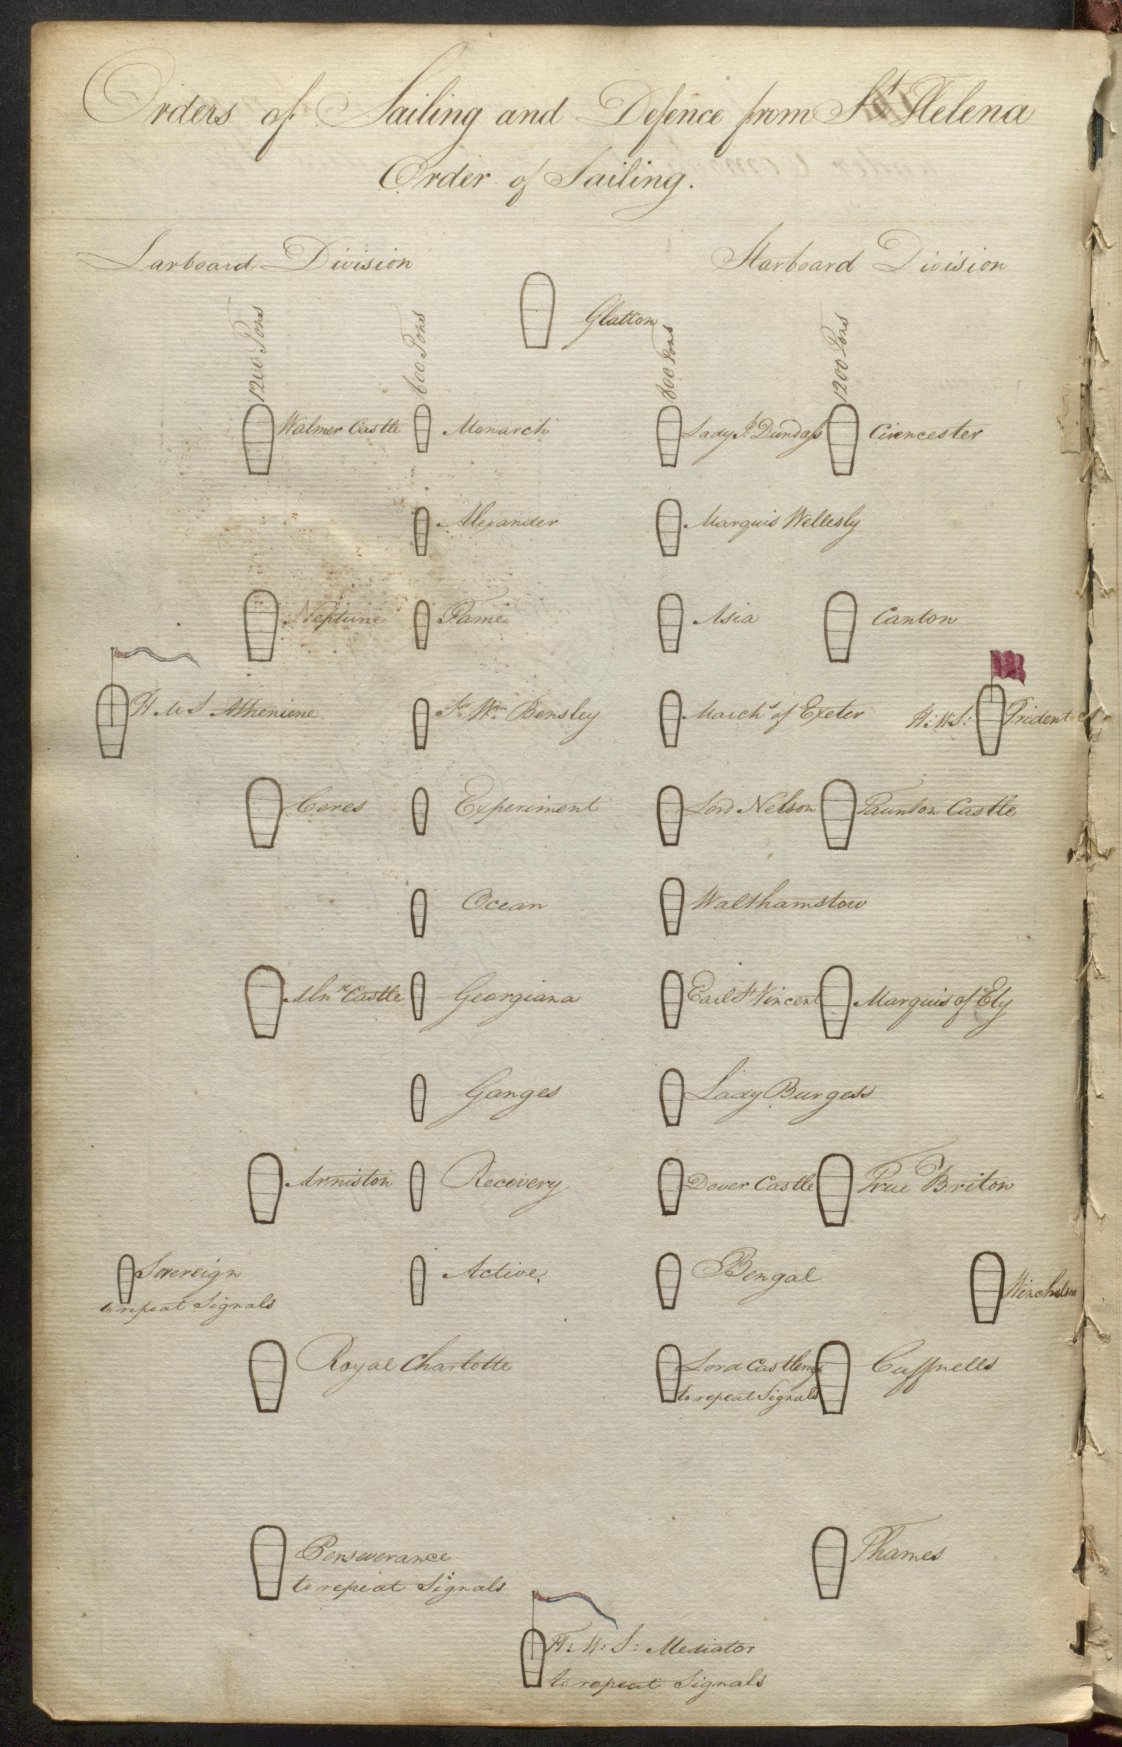 Orders of Sailing and Defence from St Helena
Order of Sailing.
Larboard Division
Starboard Division
Glatton
1200 Tons
600 Tons
800 Tons
1200 Tons
Walmer Castle
Monarch
Lady J. Dundass
Cirencester
Alexander
Marquis Wellesly
Neptune
Fame
Asia
Canton
H M S Atheniene
Sr. Wm. Bensley
March.s of Exeter
H: M: S: Trident
Ceres
Experiment
Lord Nelson
Taunton Castle
Ocean
Walthamstow
Castle
Georgiana
Earl St Vincent
Marquis of Ely
Ganges
Lady Burgess
Arniston
Recovery
Dover Castle
True Briton
Sovereign
to repeat Signals
Active
Bengal
Winchelsea
Royal Charlotte
Lord
to repeat Signals
Cuffnells
Perseverance
to repeat Signals
Thames
H: M: S: Mediator
to repeat Signals